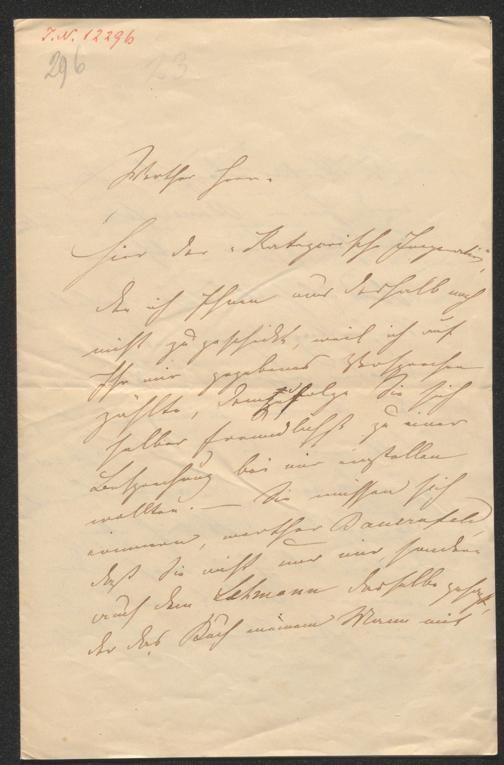 I.N. 12296
296
23
Werther Herr.
Hier der "Kategorische Imperativ",
den ich Ihnen nur deshalb noch
nicht zugeschickt, weil ich auf
Ihr mir gegebenes Versprechen
zählte, demzufolge Sie sich
selber freundlichst zu einer
Besprechung bei mir einstellen
wollten. — Sie müssen sich
erinnern, werther Bauernfeld,
daß Sie nicht nur mir sondern
auch dem Lehmann dasselbe gesagt,
der das Buch meinem Mann mit